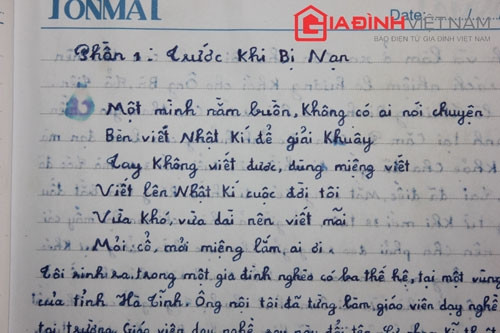 TONMAT
GIAĐÌNHVIETNAM
BÁO ĐIỆN TỬ GIA ĐÌNH VIỆT NAM
Date: /
Phần 1: Trước Khi Bị Nạn
Một mình nằm buồn, không có ai nói chuyện
Bèn viết Nhật Kí để giải Khuây
Tay Không viết được, dùng miệng viết
Viết lên Nhật Kí cuộc đời tôi
Vừa khó, vừa dài nên viết mãi
Mỏi cổ, mỏi miệng lắm, ai ơi.
Tôi sinh ra trong một gia đình nghèo có ba thế hệ, tại một vùng
của tỉnh Hà Tĩnh. Ông nôi tôi đã từng làm giáo viên dạy nghề
tại trường Giáo viên dạy nghề sau này đổi tên